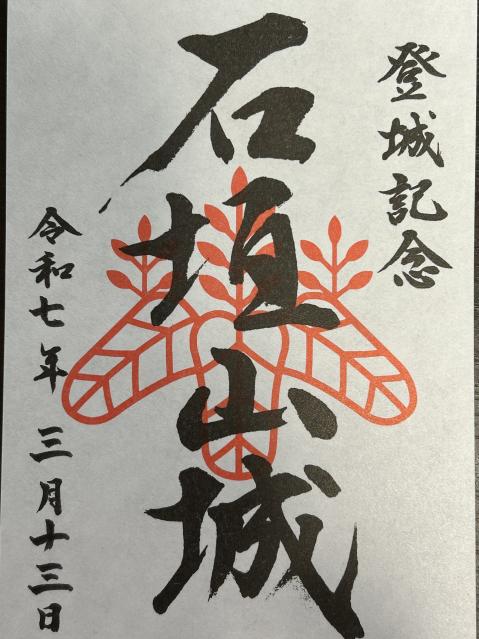 登城記念
石垣山城
令和七年 三月十三日